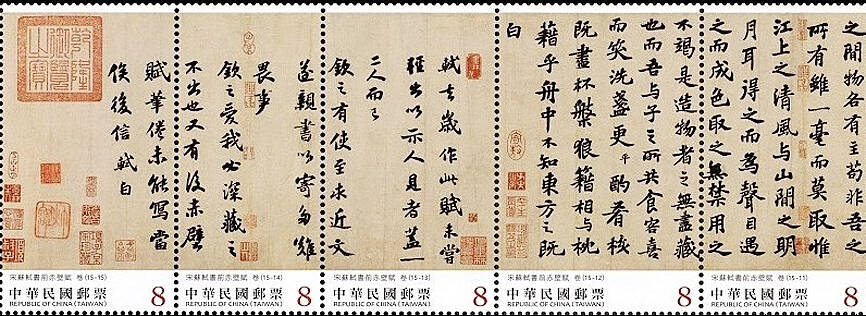 之間物各有主苟非吾之
所有雖一毫而莫取惟
江上之清風與山間之明
月耳得之而為聲目遇
之而成色取之無禁用之
不竭是造物者之無盡藏
也而吾與子之所共食客喜
而笑洗盞更平酌肴核
既盡杯槃狼籍相與枕
藉乎舟中不知東方之既
白
軾去歲作此賦未嘗
輕出以示人見者蓋一
二人而已
欽之有使至求近文
遂親書以寄多難
畏事
欽之愛我必深藏之
不出也又有後赤壁
賦筆倦未能寫當
俟後信軾白
乾隆
御覽
之寶
宋蘇軾書前赤壁賦 卷(15-15)
中華民國郵票 8
REPUBLIC OF CHINA (TAIWAN)
宋蘇軾書前赤壁賦 卷(15-14)
中華民國郵票 8
REPUBLIC OF CHINA (TAIWAN)
宋蘇軾書前赤壁賦 卷(15-13)
中華民國郵票 8
REPUBLIC OF CHINA (TAIWAN)
宋蘇軾書前赤壁賦 卷(15-12)
中華民國郵票 8
REPUBLIC OF CHINA (TAIWAN)
宋蘇軾書前赤壁賦 卷(15-11)
中華民國郵票 8
REPUBLIC OF CHINA (TAIWAN)